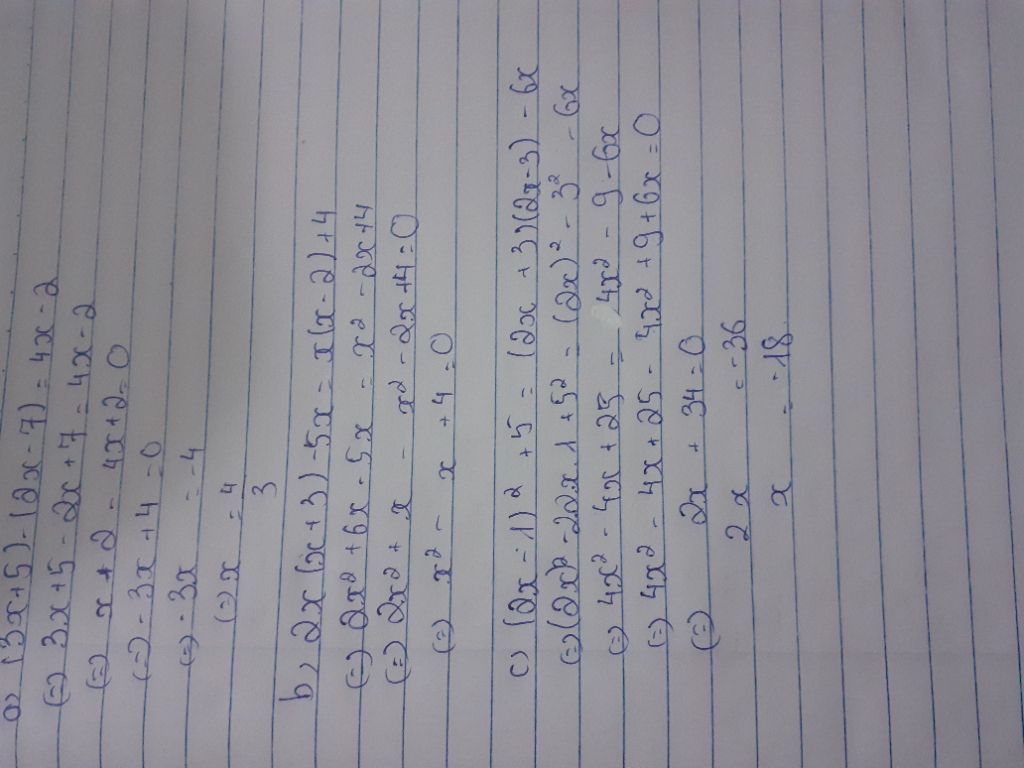 a) (3x+5) - (2x-7) = 4x-2
(=) 3x+5 - 2x+7 = 4x-2
(=) x + 2 - 4x+2=0
(=) -3x +4 =0
(=) -3x = -4
(=) x = 4/3
b) 2x (x+3) -5x = x(x-2)+4
(=) 2x² +6x - 5x = x² -2x+4
(=) 2x² + x - x² -2x+4=0
(=) x² - x +4 =0
c) (2x-1)² +5 = (2x+3)(2x-3) - 6x
(=) (2x)² - 2.2x.1 +5² = (2x)² - 3² - 6x
(=) 4x² - 4x +25 = 4x² - 9 -6x
(=) 4x² - 4x +25 - 4x² +9 +6x =0
(=) 2x + 34=0
2x = -36
x = -18